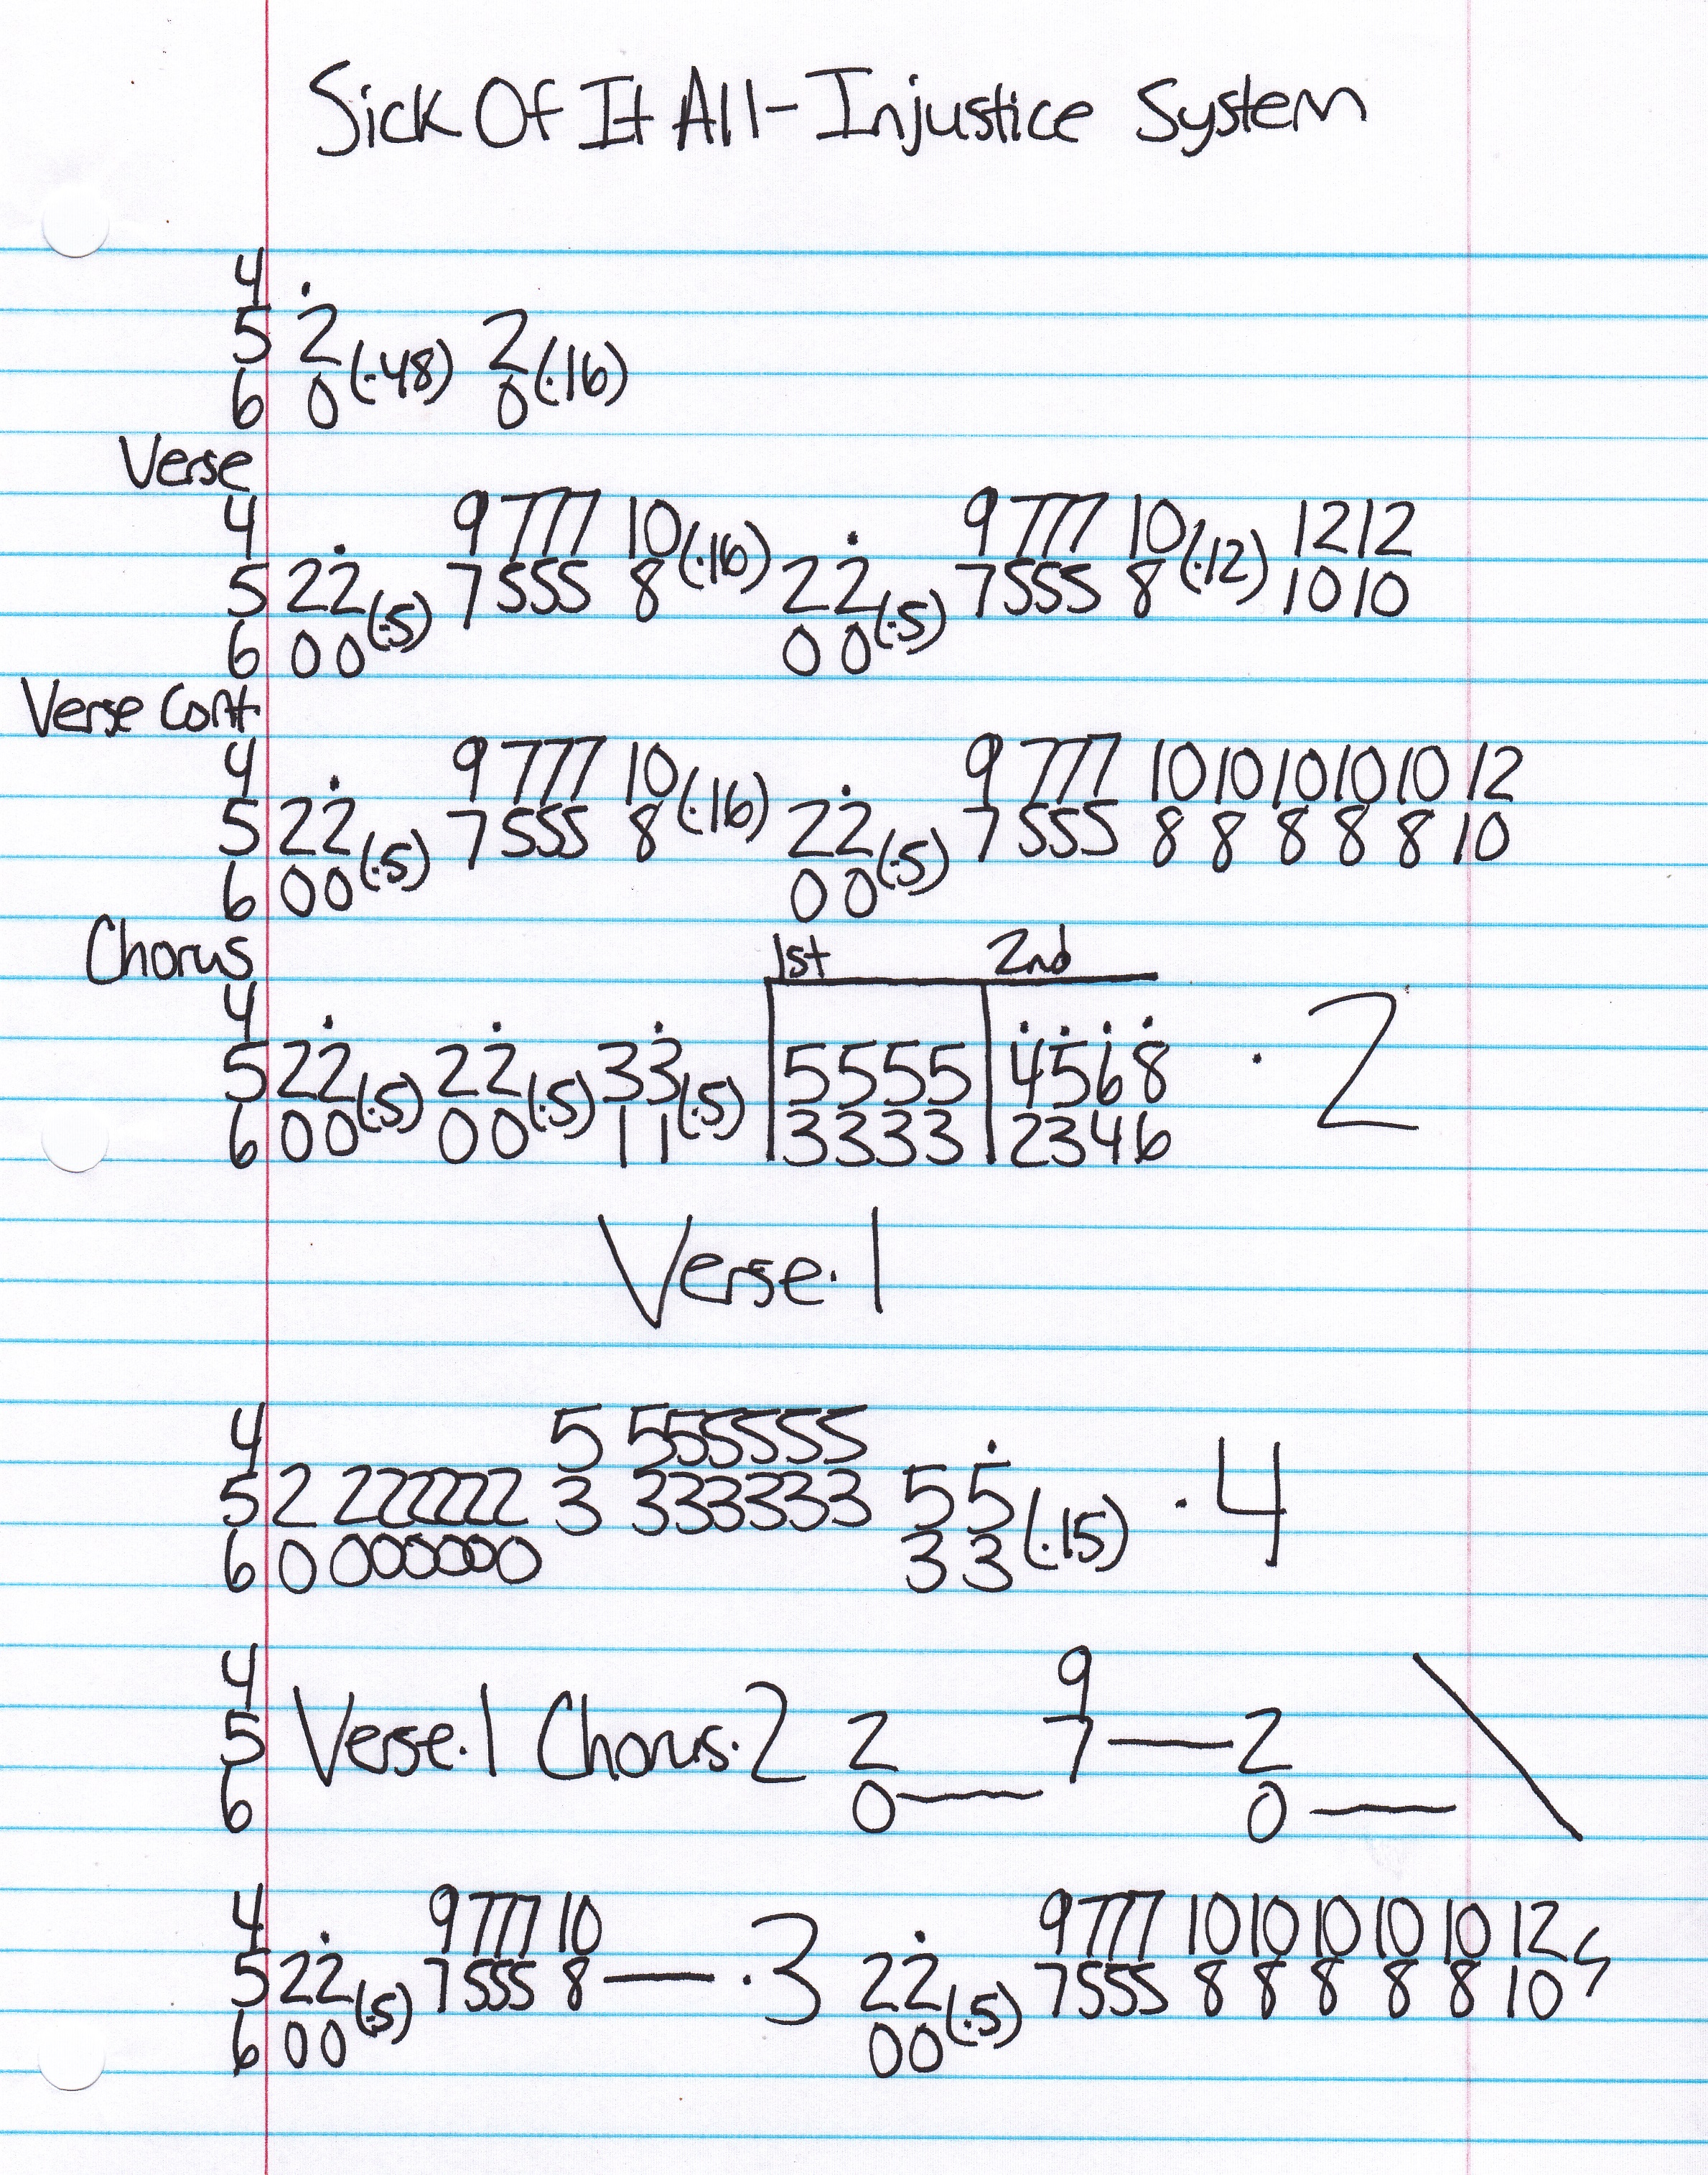 Sick Of It All - Injustice System
4 .
5 2 (·48) 2 (·16)
6 0 0
Verse
4 . 9 777 10 (·16) . 9 777 10 (·12) 12 12
5 22 (·5) 7 555 8 22 (·5) 7 555 8 10 10
6 00 00
Verse Cont.
4 . 9 777 10 (·16) . 9 777 10 10 10 10 10 12
5 22 (·5) 7 555 8 22 (·5) 7 555 8 8 8 8 8 10
6 00 00
Chorus 1st 2nd
4 . . . . . . .
5 22 (·5) 22 (·5) 33 (·5) 5555 4568 · 2
6 00 00 11 3333 2346
Verse · 1
4 5 555555 .
5 2 222222 3 333333 55 (·15) · 4
6 0 000000 33
4 9
5 Verse · 1 Chorus · 2 2 7 — 2
6 0 — 0 —
4 . 9 777 10 . 9 777 10 10 10 10 10 12
5 22 (·5) 7 555 8 — · 3 22 (·5) 7 555 8 8 8 8 8 10
6 00 00